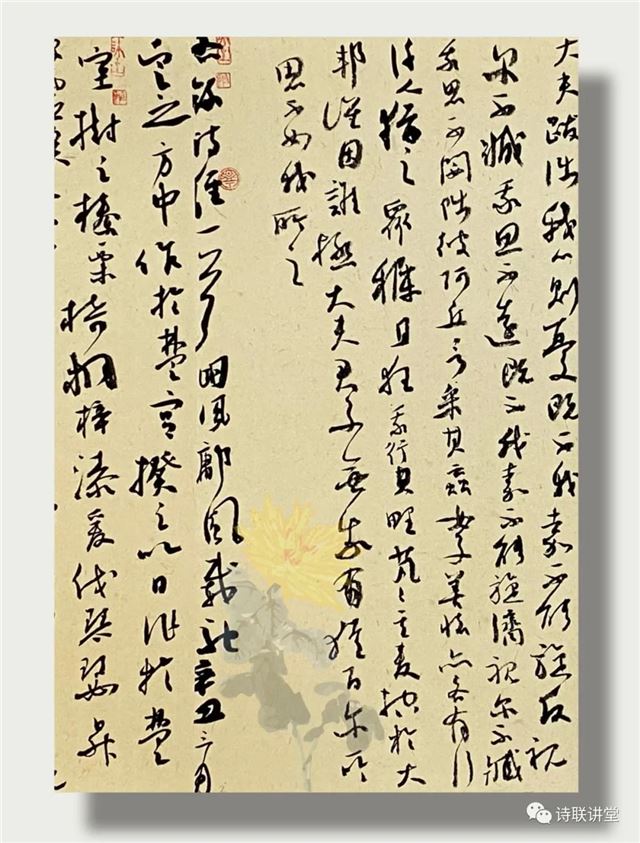 大夫跋涉我心则忧既不我嘉不能旋反视
尔不臧我思不远既不我嘉不能旋济视尔不臧
我思不閟陟彼阿丘言采其蝱女子善怀亦各有行
许人尤之众穉且狂我行其野芃々其麦控於大
邦谁因谁极大夫君子无我有尤百尔所
思不如我所之
诗经一首国风鄘风载驰辛丑三月
定之方中作於楚宫揆之以日作於楚
室树之榛栗椅桐梓漆爰伐琴瑟升
诗联讲堂